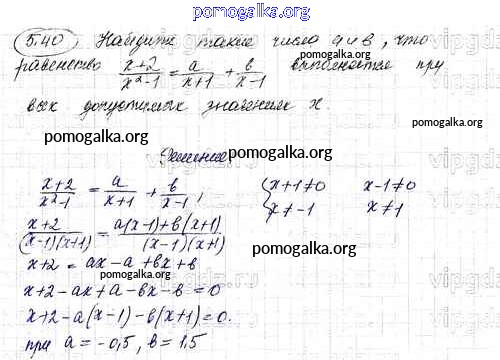 pomogalka.org
5.40 Найдите такие число a и в, что
равенство x+2/x²-1 = a/x+1 + в/x-1 выполняется при
всех допустимых значениях x.
pomogalka.org
pomogalka.org
Решение
pomogalka.org
x+2/x²-1 = a/x+1 + в/x-1, { x+1≠0 x-1≠0
x≠-1 x≠1
x+2/(x-1)(x+1) = a(x-1)+в(x+1)/(x-1)(x+1)
pomogalka.org
x+2 = ax-a+вx+в
pomogalka.org
x+2-ax+a-вx-в=0
x+2-a(x-1)-в(x+1)=0.
при a=-0,5, в=1,5
pomogalka.org